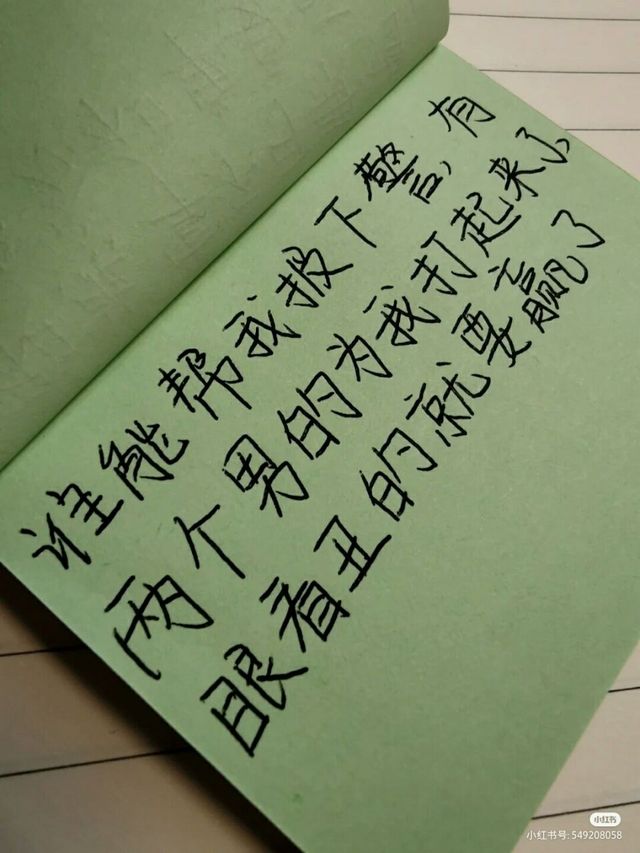 谁能帮我报下警，有
两个男的为我打起来了，
眼看丑的就要赢了
小红书
小红书号: 549208058